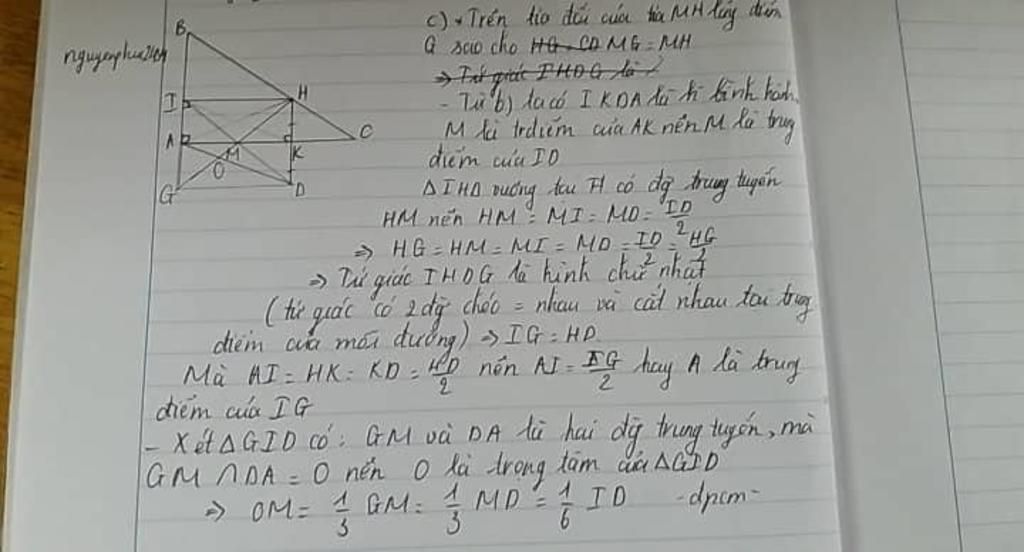 nguyenphuc2104
B
I
H
A
M
K
C
O
G
D
c) * Trên tia đối của tia MH lấy điểm
G sao cho HG = CD MG = MH
=> Tứ giác IHDG là
- Từ b) ta có IKDA là h bình hành,
M là trđiểm của AK nên M là trung
điểm của ID
ΔIHD vuông tại H có đg trung tuyến
HM nên HM = MI = MD = ID/2
=> HG = HM = MI = MD = ID/2 = HG/2
=> Tứ giác IHDG là hình chữ nhật
(tứ giác có 2 đg chéo = nhau và cắt nhau tại trung
điểm của mỗi đường) => IG = HD
Mà AI = HK = KD = HD/2 nên AI = IG/2 hay A là trung
điểm của IG
- Xét ΔGID có: GM và DA là hai đg trung tuyến, mà
GM ∩ DA = O nên O là trọng tâm của ΔGID
=> OM = 1/3 GM = 1/3 MD = 1/6 ID -đpcm-